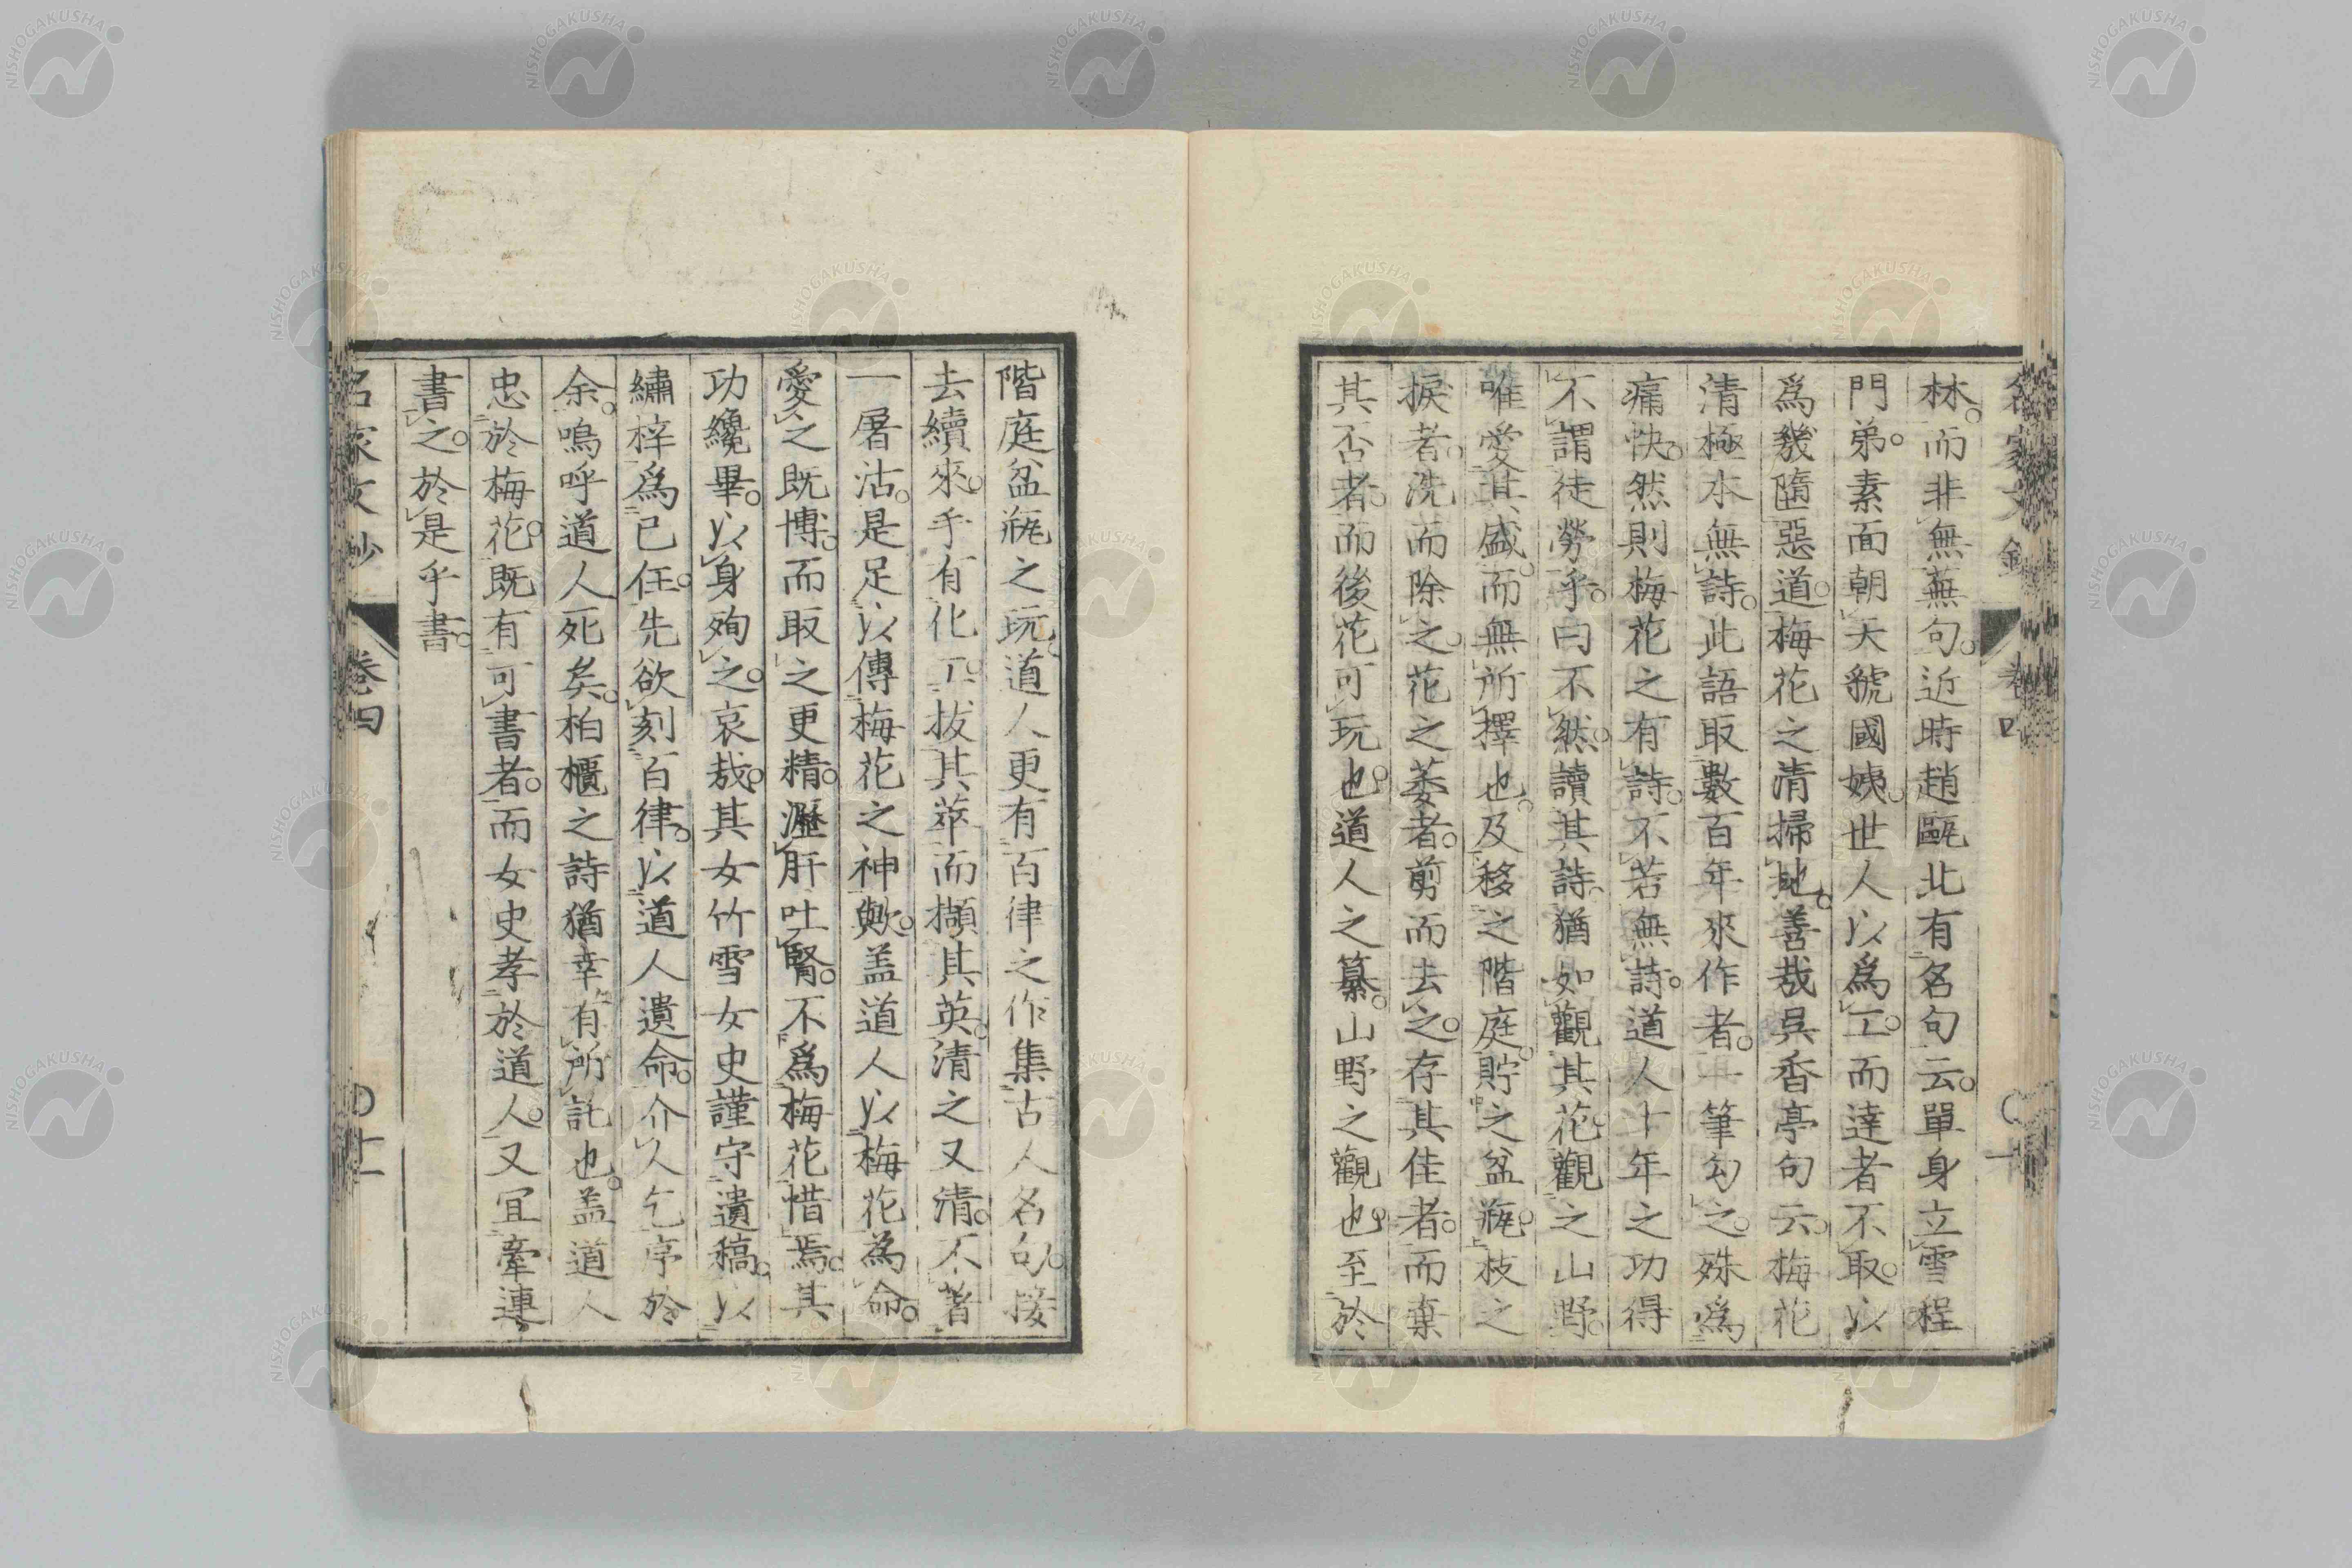 林。而非無蕪句。近時趙甌北有名句云。單身立雪程
門弟。素面朝天虢國姨。世人以爲工。而達者不取。以
爲幾隨惡道。梅花之清掃地。善哉呉香亭句云。梅花
清極本無詩。此語取數百年來作者。一筆勾之。殊爲
痛快。然則梅花之有詩。不若無詩。道人十年之功得
不謂徒勞乎。曰不然。讀其詩。猶如觀其花。觀之山野。
唯愛其盛。而無所擇也。及移之階庭。貯之盆瓶。枝之
捩者。洗而除之。花之萎者。剪而去之。存其佳者。而棄
其否者。而後花可玩也。道人之纂。山野之觀也。至於
階庭盆瓶之玩。道人更有百律之作集古人名句。接
去續來。手有化工。拔其萃而擷其英。清之又清。不著
一屠沽。是足以傳梅花之神歟。盖道人以梅花為命。
愛之既博。而取之更精。瀝肝吐腎。不爲梅花惜焉。其
功纔畢。以身殉之。哀哉。其女竹雪女史謹守遺稿。以
繡梓爲己任。先欲刻百律。以道人遺命。介人乞序於
余。嗚呼道人死矣。柏櫃之詩猶幸有所託也。盖道人
忠於梅花。既有可書者。而女史孝於道人。又宜牽連
書之。於是乎書。
名家文抄 卷四 〇十一